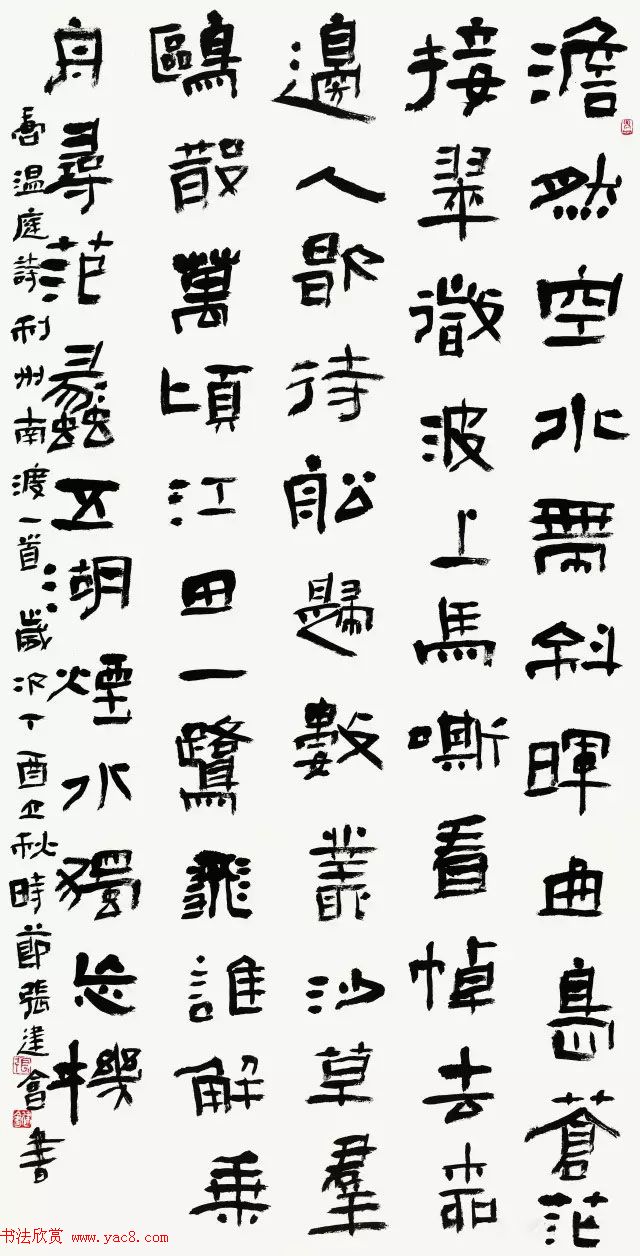 澹然空水帶斜暉曲島蒼茫
接翠微波上馬嘶看棹去柳
邊人歇待船歸數叢沙草羣
鷗散萬頃江田一鷺飛誰解乘
舟尋范蠡五湖煙水獨忘機
温庭詩利州南渡一首歲次丁酉立秋時節張建會書
书法欣赏 www.yac8.com